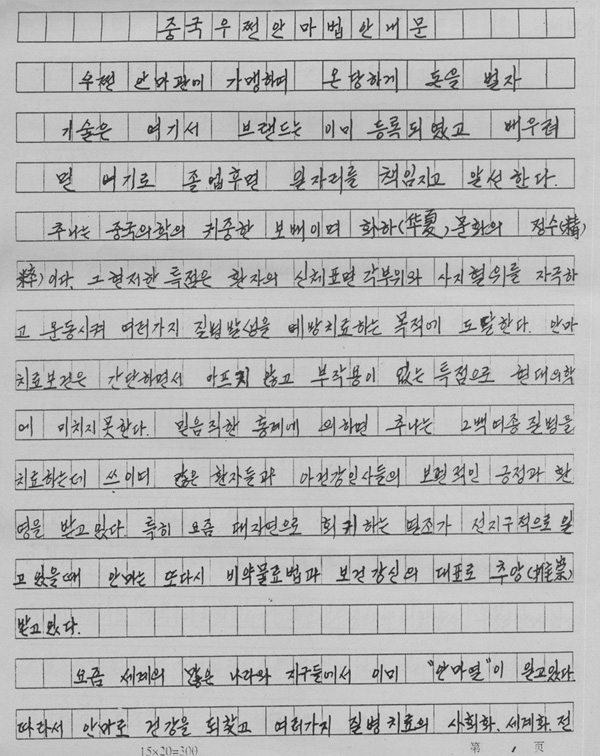 중국우쩐안마법안내문
우쩐 안마관에 가맹하여 온당하게 돈을 벌자
기술은 여기서 브랜드는 이미 등록되였고 배우려
면 여기로 졸업후면 일자리를 책임지고 알선한다.
추나는 중국의학의 귀중한 보배이며 화하(华夏)문화의 정수(精
粹)이다. 그 현저한 특점은 환자의 신체표면 각부위와 사지혈위를 자극하
고 운동시켜 여러가지 질병발생을 예방치료하는 목적에 도달한다. 안마
치료보건은 간단하면서 아프지 않고 부작용이 없는 특점으로 현대의학
에 미치지못한다. 믿음직한 통계에 의하면 추나는 2백여종질병을
치료하는데 쓰이며 많은 환자들과 아건강인사들의 보편적인 긍정과 환
영을 받고있다. 특히 요즘 대자연으로 회귀하는 열조가 전지구적으로 일
고있을때 안마는 또다시 비약물료법과 보건강신의 대표로 추앙(推崇)
받고있다.
요즘 세계의 많은 나라와 지구들에서 이미 "안마열"이 일고있다.
따라서 안마로 건강을 되찾고 여러가지 질병치료의 사회화. 세계화. 전
15×20=300 第 1 页